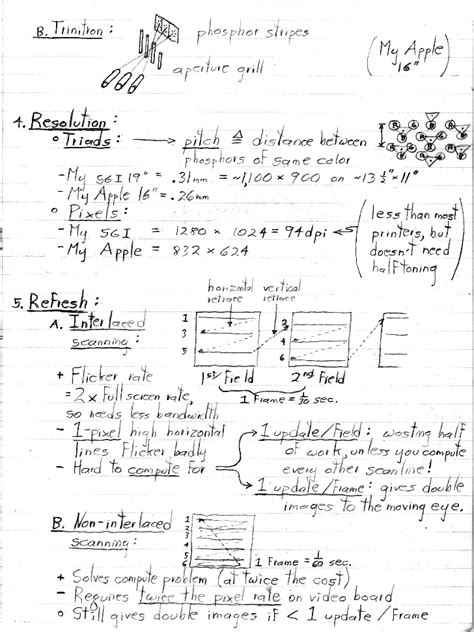 B. Trinitron : phosphor stripes
aperture grill
(My Apple 16")
4. Resolution :
o Triads : → pitch ≜ distance between
phosphors of same color
- My SGI 19" = .31mm = ~1,100 × 900 on ~13½"×11"
- My Apple 16" = .26mm
o Pixels :
- My SGI = 1280 × 1024 = 94dpi
- My Apple = 832 × 624
(less than most
printers, but
doesn't need
halftoning)
5. Refresh :
horizontal retrace
vertical retrace
A. Interlaced
scanning :
1
3
5
2
4
6
1st Field
2nd Field
1 Frame = 1/30 sec.
+ Flicker rate
= 2 × full screen rate,
so needs less bandwidth
- 1-pixel high horizontal
lines flicker badly
- Hard to compute for
→ 1 update/Field : wasting half
of work, unless you compute
every other scanline!
→ 1 update/Frame : gives double
images to the moving eye.
B. Non-interlaced
scanning :
1
2
3
4
5
6
1 Frame = 1/60 sec.
+ Solves compute problem (at twice the cost)
- Requires twice the pixel rate on video board
o Still gives double images if < 1 update / Frame